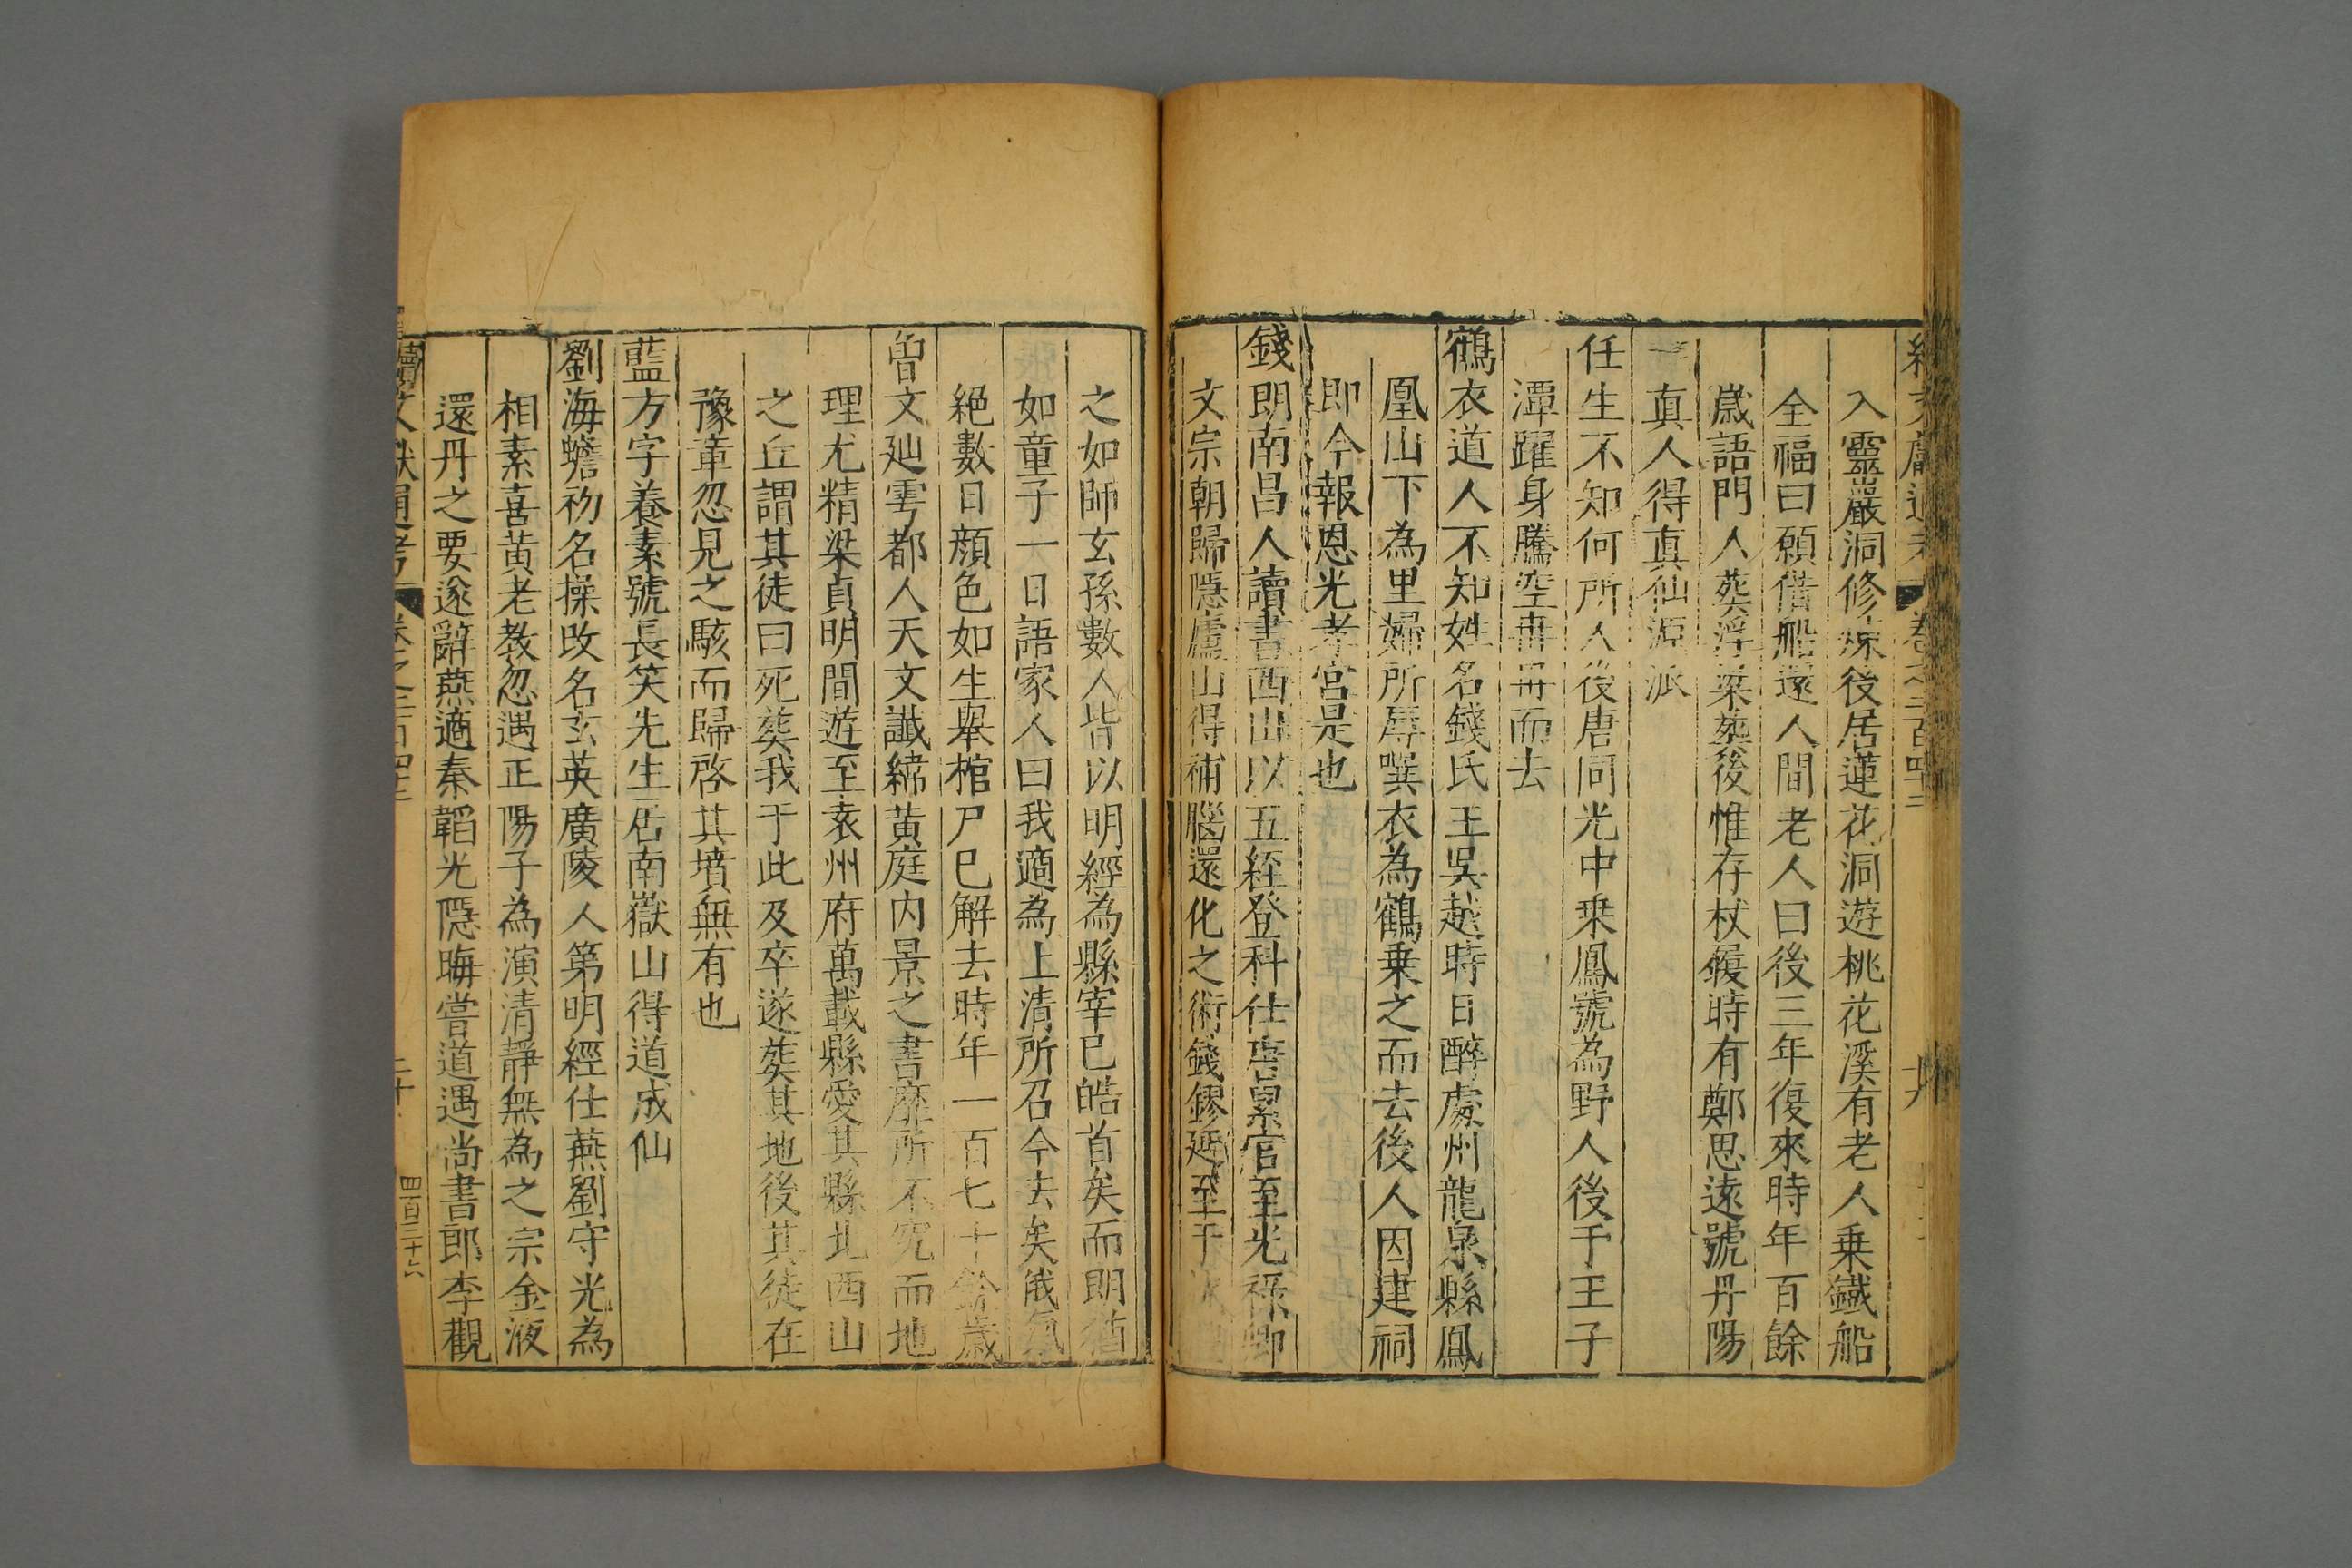 入靈巖洞修煉後居蓮花洞遊桃花溪有老人乗鐡船
全福曰願借船還人間老人曰後三年復來時年百餘
歳語門人葬浮梁葬後惟存杖履時有鄭思遠號丹陽
真人得真仙源派
任生不知何所人後唐同光中乗鳳號為野人後于王子
潭躍身騰空而去
鶴衣道人不知姓名錢氏王吳越時日醉處州龍泉縣鳳
凰山下為里婦所辱噀衣為鶴乗之而去後人因建祠
即今報恩光孝宮是也
錢朗南昌人讀書西山以五經登科仕唐累官至光祿卿
文宗朝歸隱廬山得補腦還化之術錢鏐延至于
之如師玄孫數人皆以明經為縣宰已皓首矣而朗猶
如童子一日語家人曰我適為上清所召今去矣俄氣
絶數日顔色如生舉棺尸已解去時年一百七十餘歲
曾文辿雩都人天文讖緯黃庭内景之書靡所不究而地
理尤精梁貞明間遊至袁州府萬載縣愛其縣北西山
之丘謂其徒曰死葬我于此及卒遂葬其地後其徒在
豫章忽見之駭而歸啓其墳無有也
藍方字養素號長笑先生居南嶽山得道成仙
劉海蟾初名操改名玄英廣陵人第明經仕燕劉守光為
相素喜黄老教忽遇正陽子為演清靜無為之宗金液
還丹之要遂辭燕適秦韜光隱晦嘗道遇尚書郎李觀
續文獻通考 卷之二百四十三 二十 四百三十六